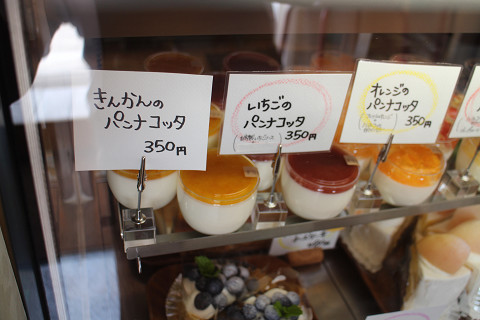 きんかんの
パンナコッタ
350円
いちごの
パンナコッタ
350円
オレンジの
パンナコッタ
350円